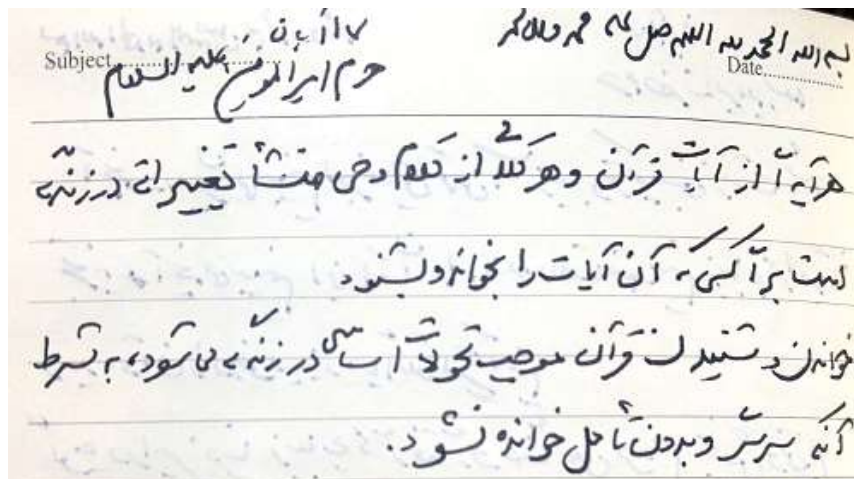 بسم الله الحمد لله اللهم صل علی محمد و آل محمد
Date
۱۷ آبان
Subject
حرم امیرالمومنین علیه السلام
هر آیه‌ای از آیات قرآن و هر کلمه‌ای از کلام وحی منشأ تغییراتی در زندگی
است برای کسی که آن آیات را بخواند و بشنود.
خواندن و شنیدن قرآن موجب تحولات اساسی در زندگی می‌شود، به شرط
آنکه سرسری و بدون تأمل خوانده نشود.